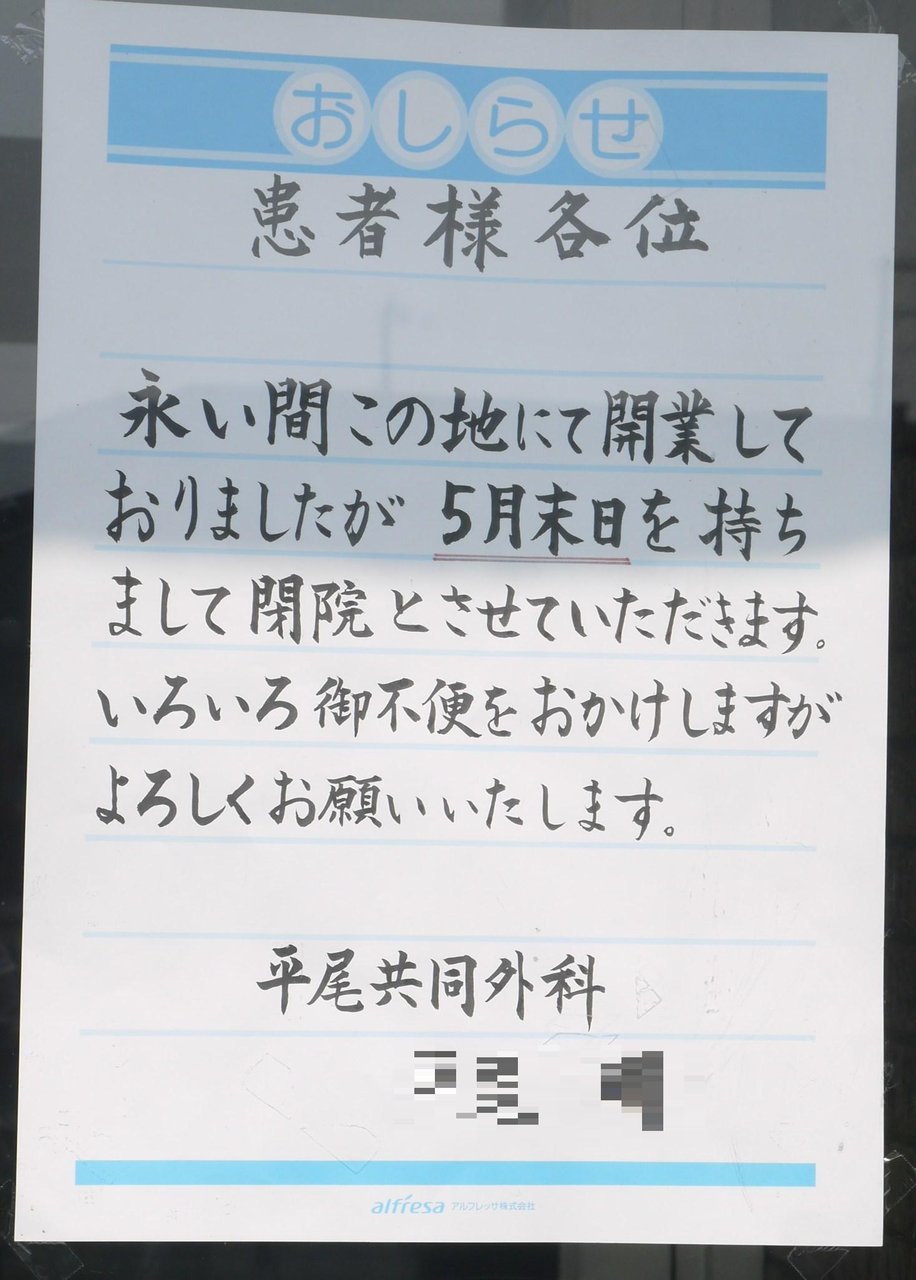 おしらせ
患者様各位
永い間この地にて開業して
おりましたが 5月末日を持ち
まして閉院とさせていただきます。
いろいろ御不便をおかけしますが
よろしくお願いいたします。
平尾共同外科
alfresa アルフレッサ株式会社